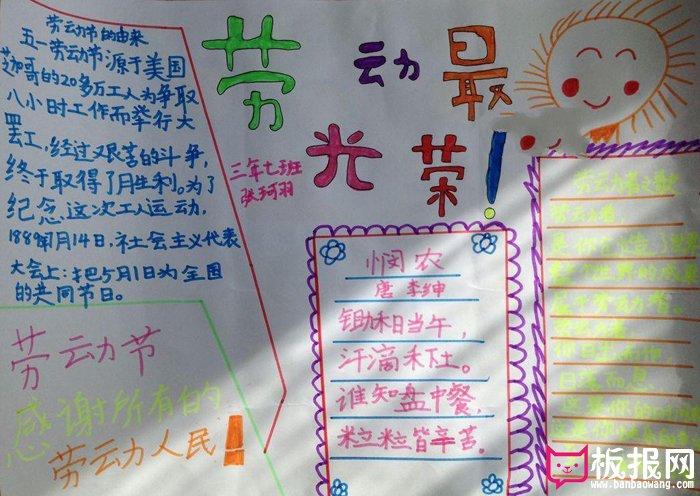 劳动最
光荣!
三年七班
张珂羽
劳动节的由来
五一劳动节源于美国
芝加哥的20多万工人为争取
八小时工作而举行大
罢工,经过艰苦的斗争,
终于取得了胜利。为了
纪念这次工人运动,
1889年7月14日,社会主义代表
大会上:把5月1日为全国
的共同节日。
劳动节
感谢所有的
劳动人民!
悯农
唐 李绅
锄禾日当午,
汗滴禾下土。
谁知盘中餐,
粒粒皆辛苦。
劳动者之歌
劳动者,
日落而息
板报网
www.banbaowang.com